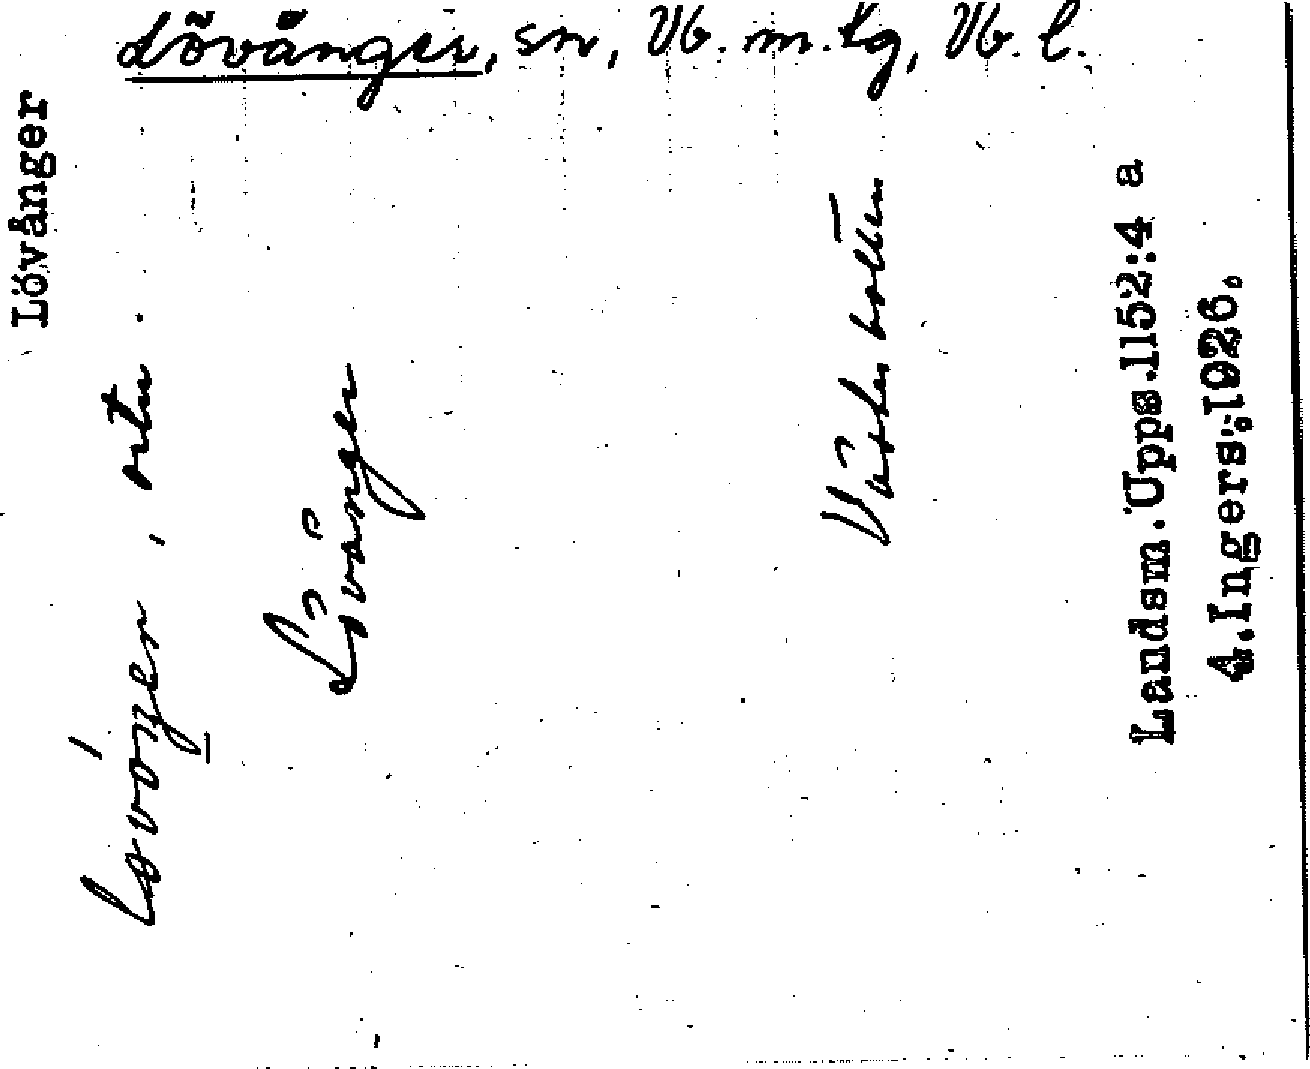 Lövånger, sn, Vb. m. tg, Vb. l.
Lövånger
Lövånger
Västerbotten
Landsm. Upps. 1152:4 a
4. Ingers, 1926.